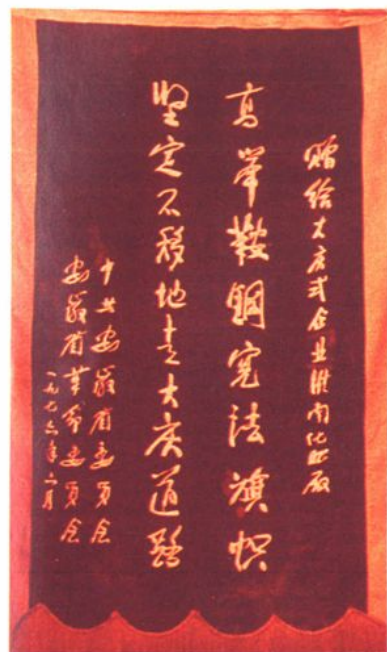 赠给大庆式企业淮南化肥厂
高举鞍钢宪法旗帜
坚定不移地走大庆道路
中共安徽省委员会
安徽省革命委员会
一九七六年六月